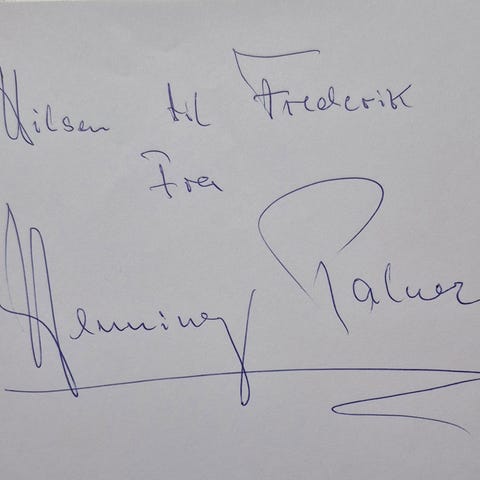 Hilsen til Frederik
Fra
Henning Palner